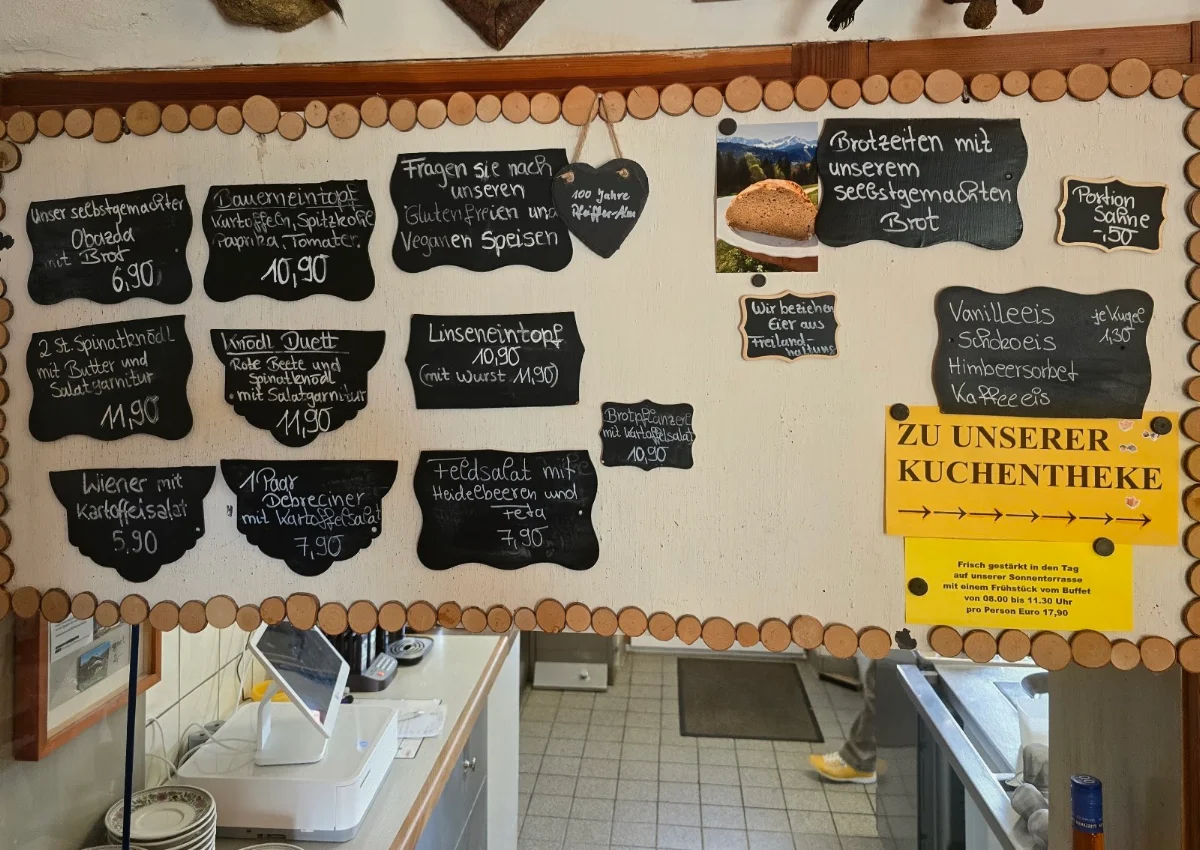 Unser selbstgemachter
Obazda
mit Brot
6,90
Bauerneintopf
Kartoffeln, Spitzkohl
Paprika, Tomaten
10,90
Fragen sie nach
unseren
Glutenfreien und
Veganen Speisen
100 Jahre
Pfeiffer-Alm
Brotzeiten mit
unserem
selbstgemachten
Brot
Portion
Sahne
-,50
2 St. Spinatknödl
mit Butter und
Salatgarnitur
11,90
Knödl Duett
Rote Beete und
Spinatknödl
mit Salatgarnitur
11,90
Linseneintopf
10,90
(mit Wurst 11,90)
Wir beziehen
Eier aus
Freiland-
haltung
Vanilleeis je Kugel
Schokoeis 1,30
Himbeersorbet
Kaffeeeis
Brotpflanzerl
mit Kartoffelsalat
10,90
Wiener mit
Kartoffelsalat
5,90
1 Paar
Debreciner
mit Kartoffelsalat
7,90
Feldsalat mit
Heidelbeeren und
Feta
7,90
ZU UNSERER
KUCHENTHEKE
Frisch gestärkt in den Tag
auf unserer Sonnenterrasse
mit einem Frühstück vom Buffet
von 08.00 bis 11.30 Uhr
pro Person Euro 17,90